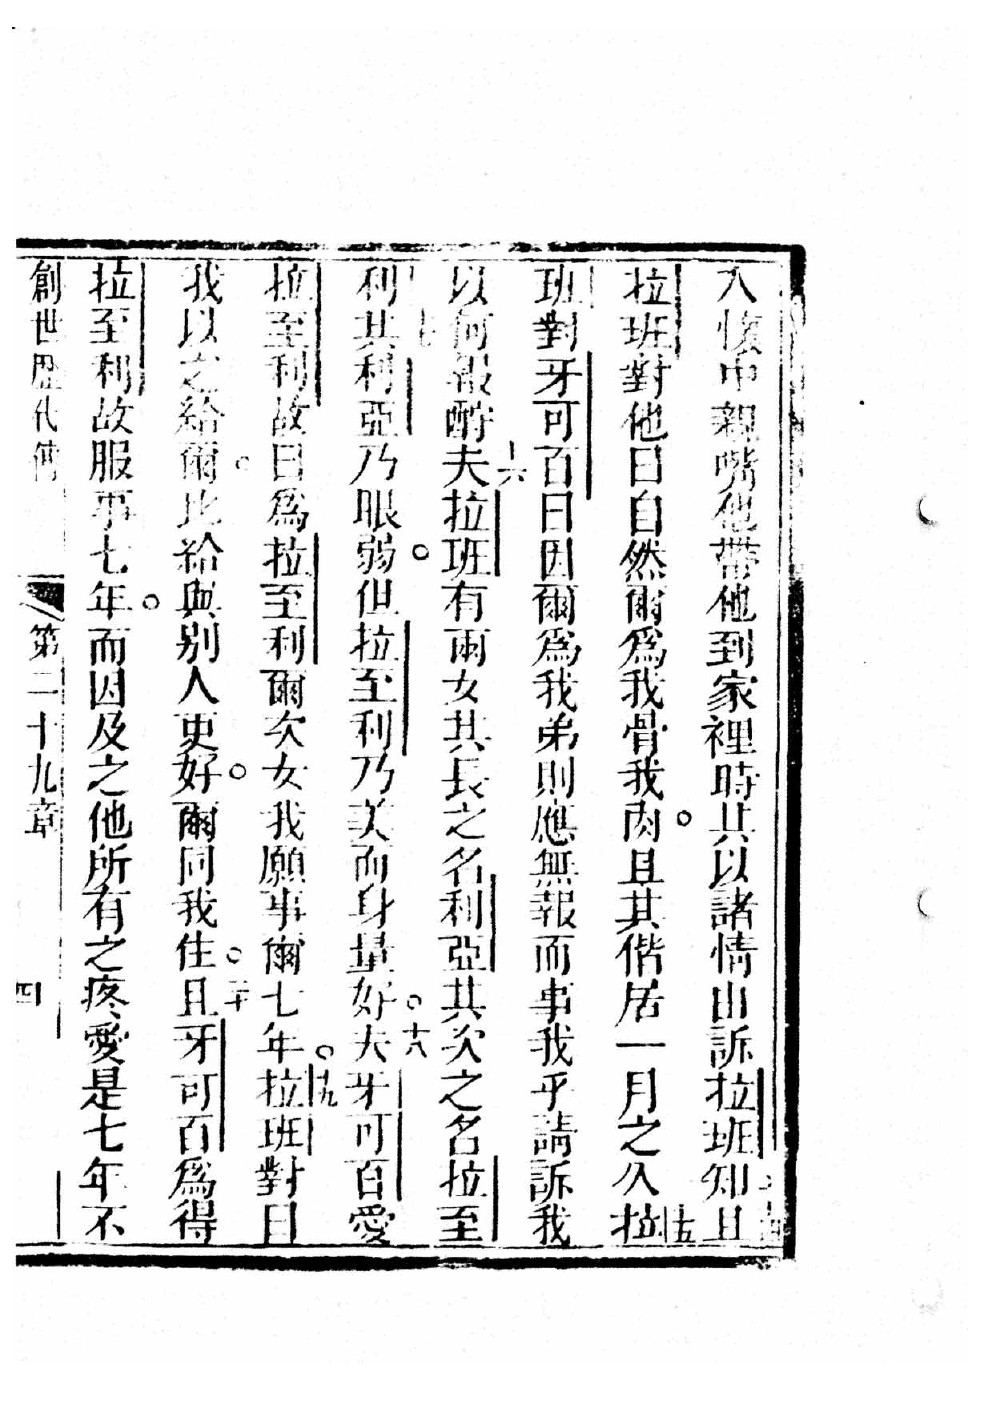 入懷中親嘴他帶他到家裡時其以諸情由訴拉班知且
十四
拉班對他曰自然爾爲我骨我肉。且其偕居一月之久拉
十五
班對牙可百曰因爾爲我弟則應無報而事我乎請訴我
以何報酧夫拉班有兩女其長之名利亞其次之名拉至
十六
利其利亞乃眼弱。但拉至利乃美而身量好。夫牙可百愛
十七 十八
拉至利故曰爲拉至利爾次女我願事爾七年。拉班對曰
十九
我以之給爾。比給與別人更好。爾同我住。且牙可百爲得
二十
拉至利故服事七年。而因及之他所有之疼愛是七年不
創世歷代傳 第二十九章 四